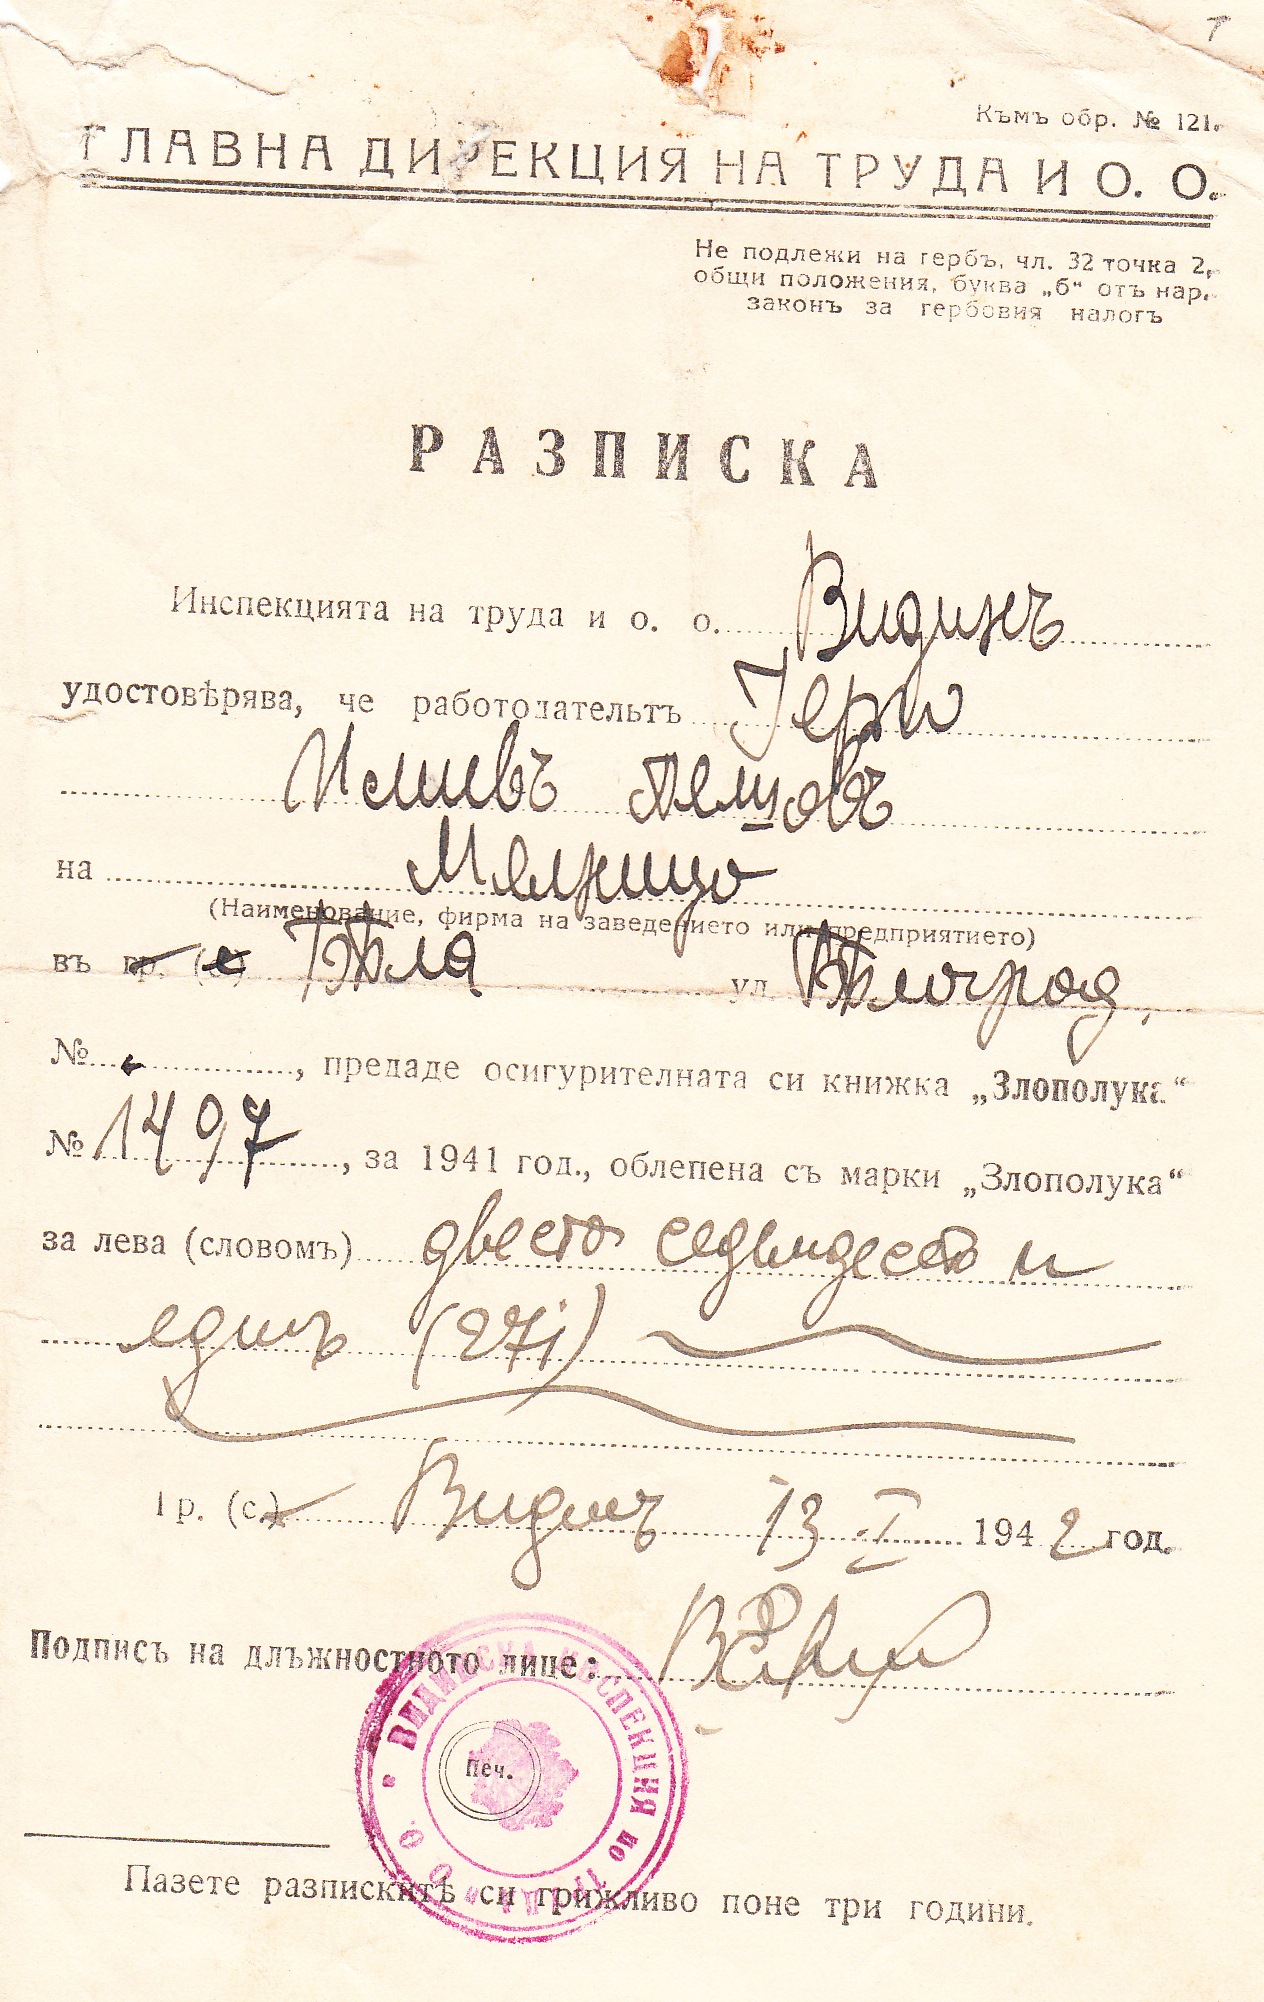 Къмъ обр. № 121.
ГЛАВНА ДИРЕКЦИЯ НА ТРУДА И О. О.
Не подлежи на гербъ, чл. 32 точка 2,
общи положения, буква „б“ отъ нар.
законъ за гербовия налогъ
РАЗПИСКА
Инспекцията на труда и о. о. Видинъ
удостовѣрява, че работодательтъ
на
(Наименование, фирма на заведението или предприятието)
въ гр. (с) Бѣла ул. Бѣлоград.
№ , предаде осигурителната си книжка „Злополука“
№ 1497, за 1941 год., облепена съ марки „Злополука“
за лева (словомъ) двеста седемдесетъ и
единъ (271)
Гр. (с.) Видинъ 13 I 1942 год.
Подпись на длъжностното лице:
Видинска инспекция по труда О О
Печ.
Пазете разпискитѣ си грижливо поне три години.